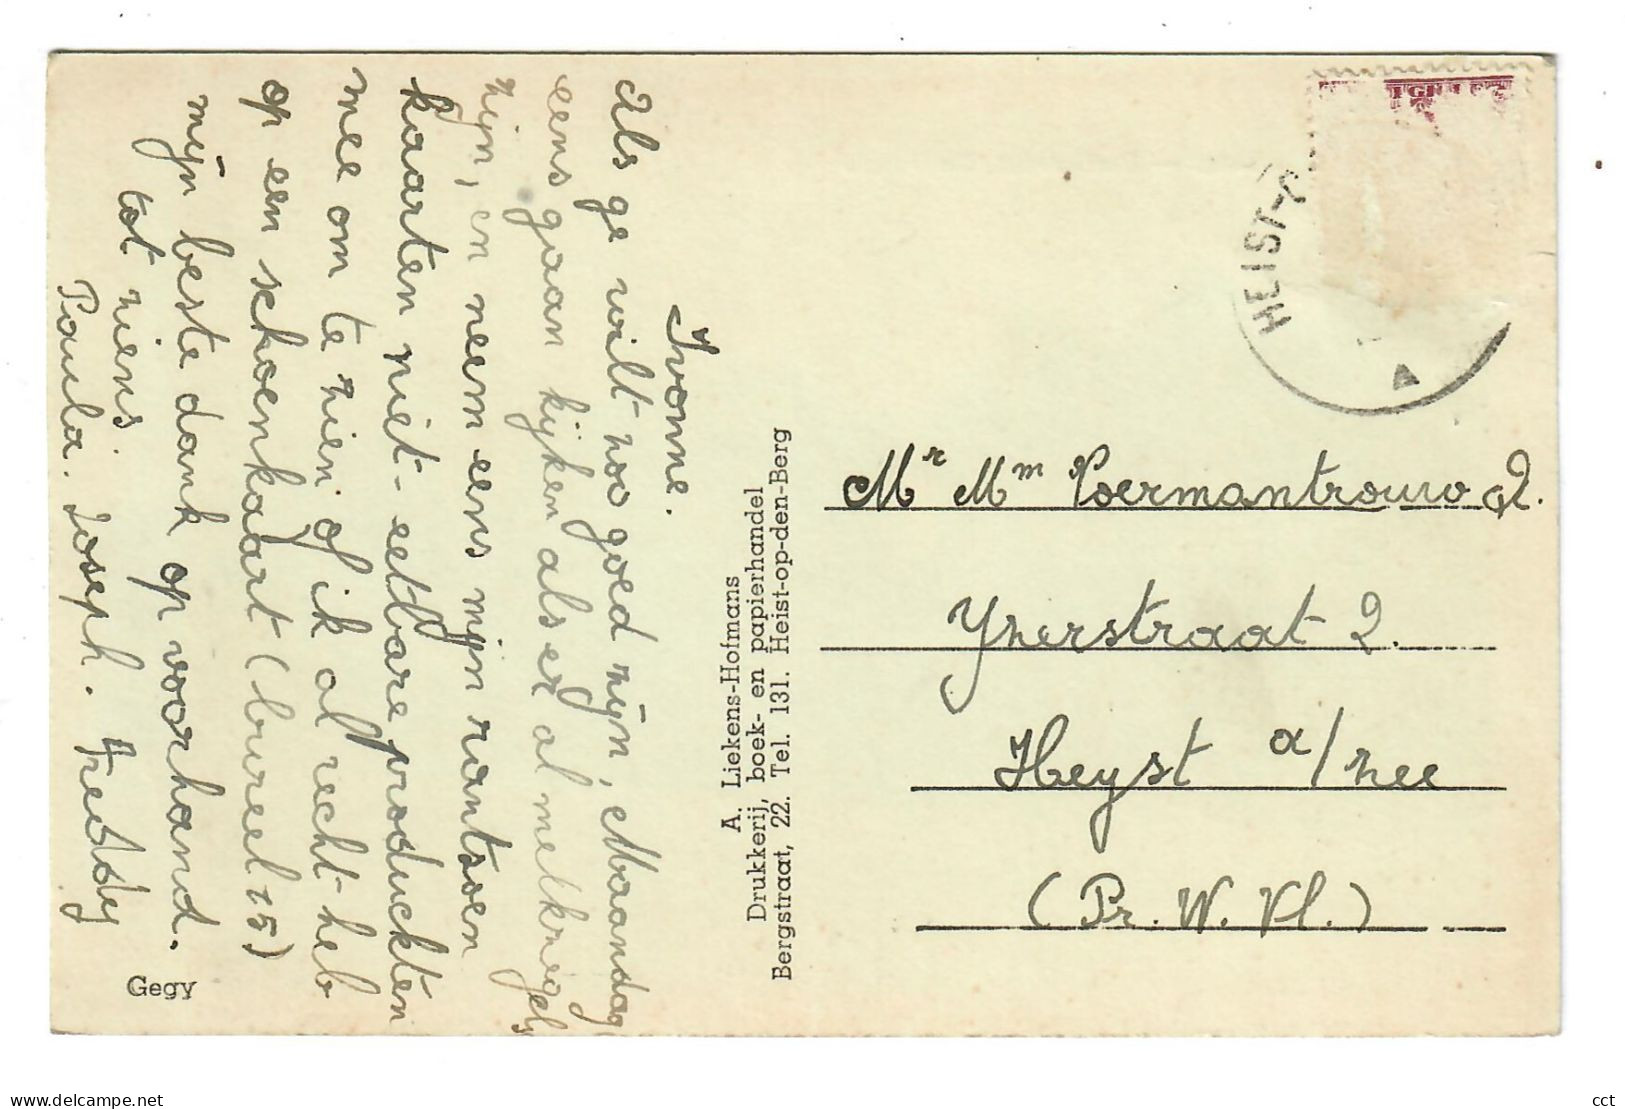 Ivonne.
Als ge wilt zoo goed zijn, Maandag
eens gaan kijken als er al melkregels
zijn, en neem eens mijn rantsoen
kaarten niet-eetbare produckten
mee om te zien of ik al recht heb
op een schoenkaart (bureel 15)
mijn beste dank op voorhand.
tot ziens.
Paula. Joseph. Freddy
Gegy
A. Liekens-Hofmans
Drukkerij, boek- en papierhandel
Bergstraat, 22. Tel. 131. Heist-op-den-Berg
HEIST-
Mr Mm Poermantrouw
Yzerstraat 2.
Heyst a/zee
(Pr. W. Vl.)
www.delcampe.net
cct